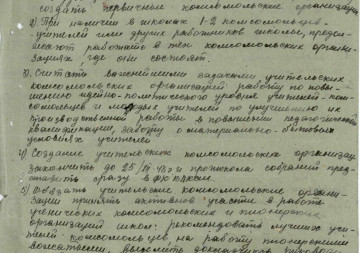 создать первичные комсомольские организации
2) При наличии в школах 1-2 комсомольцев-
учителей или других работников школы, предла-
гают работать в тех комсомольских органи-
зациях, где они состоят.
3) Считать важнейшими задачами учительских
комсомольских организаций работу по повы-
шению идейно-политического уровня учителей-ком-
сомольцев и молодых учителей по улучшению их
производственной работы и повышении педагогической
квалификации, заботу о материально-бытовых
условиях учителей
4) Создание учительских комсомольских организац.
закончить до 25/ и протокола собраний пред-
ставить сразу в РК ВЛКСМ.
5) Обязать учительские комсомольские органи-
зации принять активное участие в работе
ученических комсомольских и пионерских
организаций школ: рекомендовать лучших учи-
телей-комсомольцев на работу пионерскими
вожатыми, выделить докладчиков